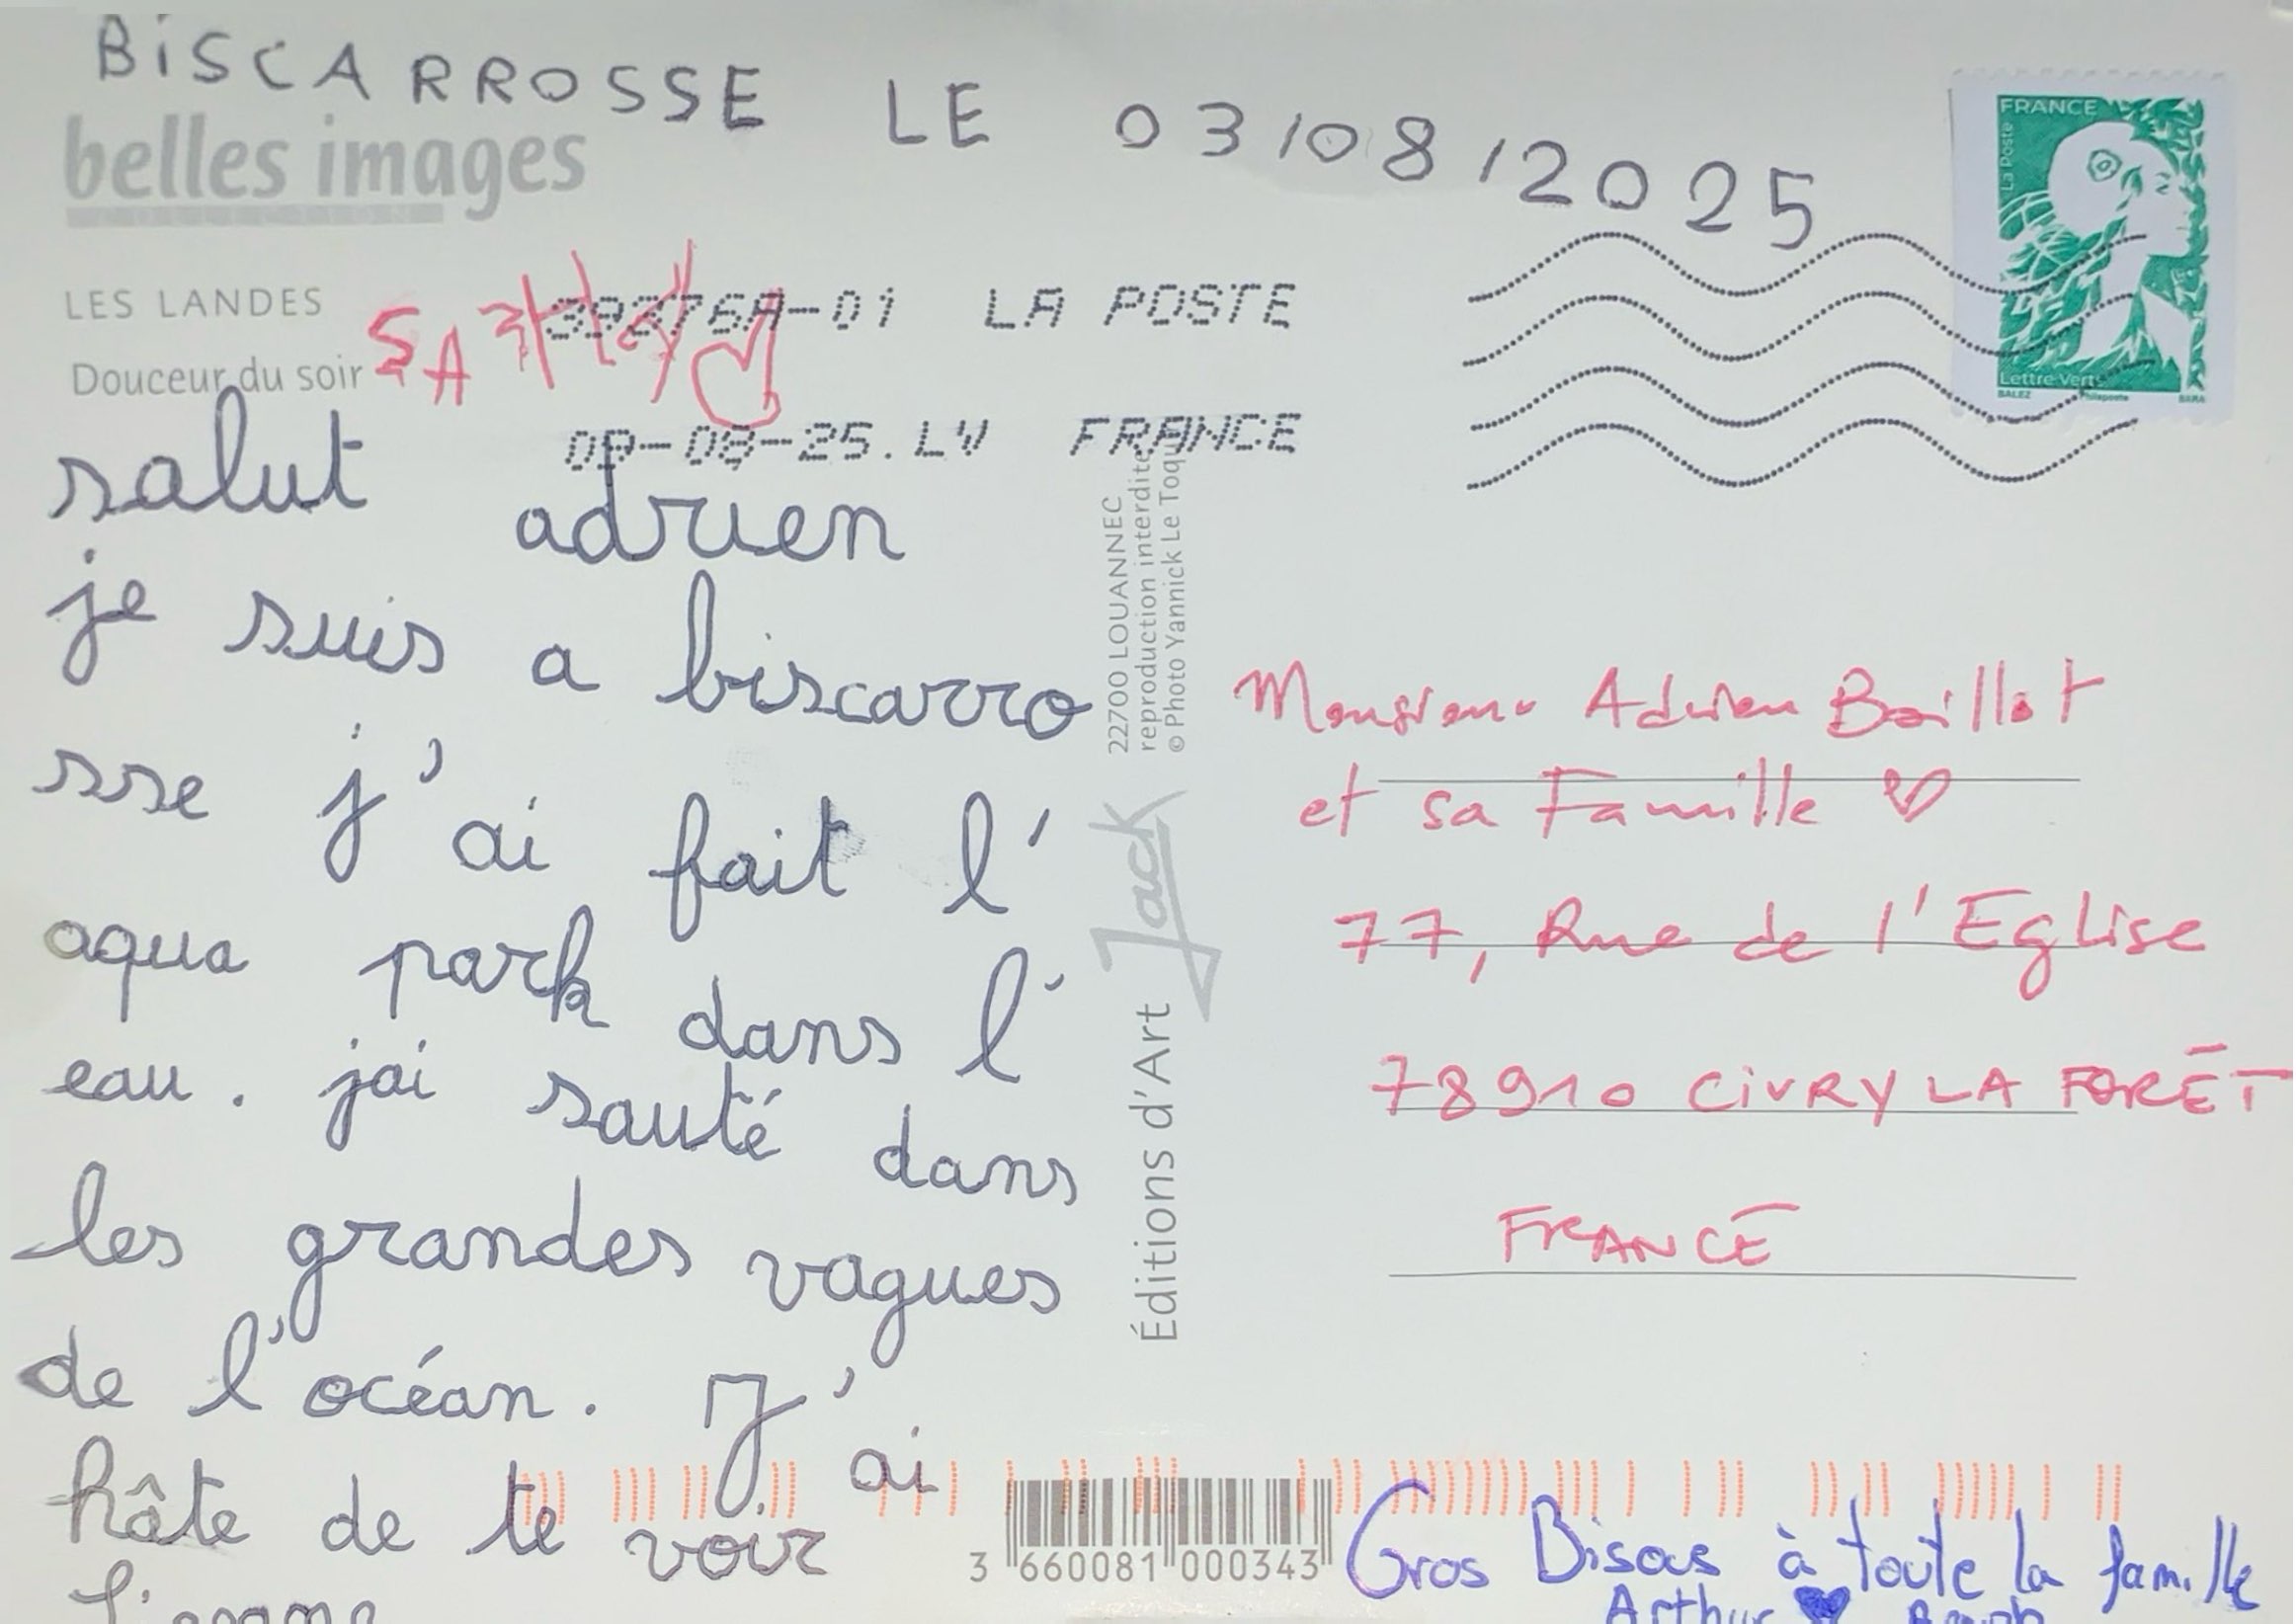 BiSCARROSSE LE 03/08/2025
belles images
FRANCE
La Poste
Lettre Verte
BALEZ Philaposte BARA
LES LANDES
Douceur du soir
39276A-01 LA POSTE
09-08-25.LV FRANCE
salut adrien
je suis a biscarro
sse j'ai fait l'
aqua park dans l'
eau. jai sauté dans
les grandes vagues
de l'océan. J'ai
hâte de te voir
22700 LOUANNEC
reproduction interdite
© Photo Yannick Le Toqu
Éditions d'Art Jack
Monsieur Adrien Baillot
et sa Famille
77, Rue de l'Eglise
78910 CiVRY LA FORÊT
FRANCE
3 660081 000343
Gros Bisous à toute la famille
Arthur